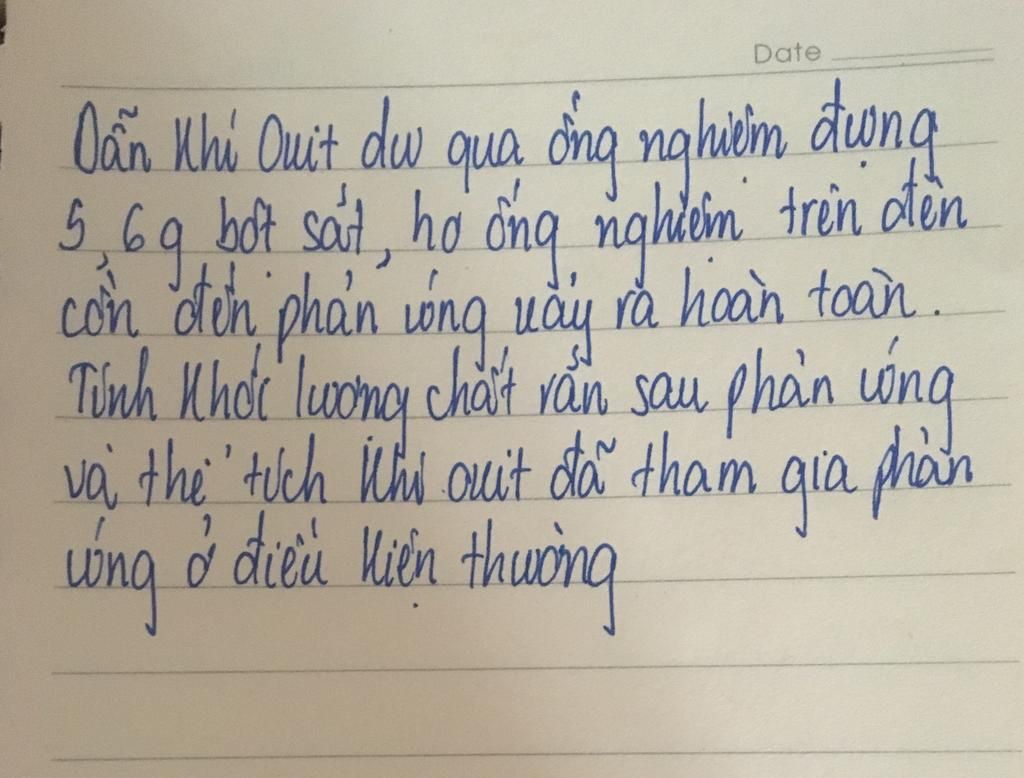 Date
Dẫn khí Ouit dư qua ống nghiệm đựng
5,6g bột sắt, hơ ống nghiệm trên đèn
cồn đến phản ứng uảy ra hoàn toàn.
Tính khối lượng chất rắn sau phản ứng
và thể tích khí ouit đã tham gia phản
ứng ở điều kiện thường